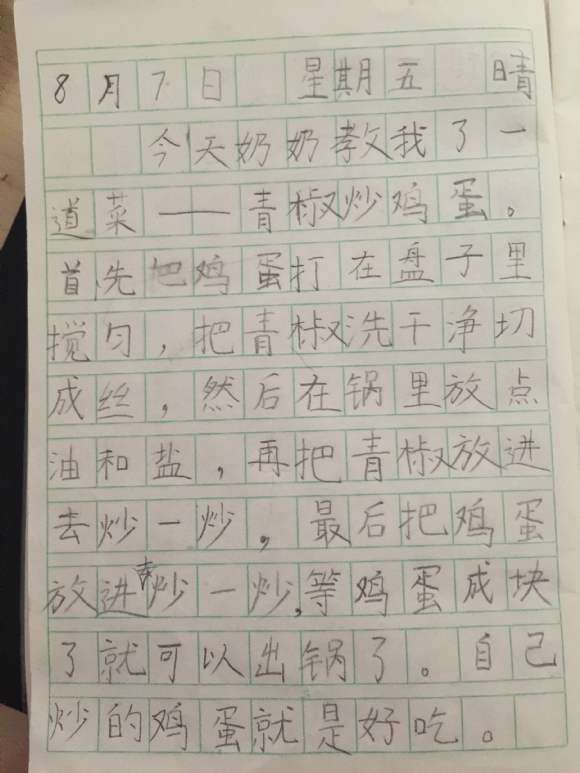 8月7日 星期五 晴
今天奶奶教我了一
道菜——青椒炒鸡蛋。
首先把鸡蛋打在盘子里
搅匀，把青椒洗干净切
成丝，然后在锅里放点
油和盐，再把青椒放进
去炒一炒，最后把鸡蛋
放进去炒一炒，等鸡蛋成块
了就可以出锅了。自己
炒的鸡蛋就是好吃。